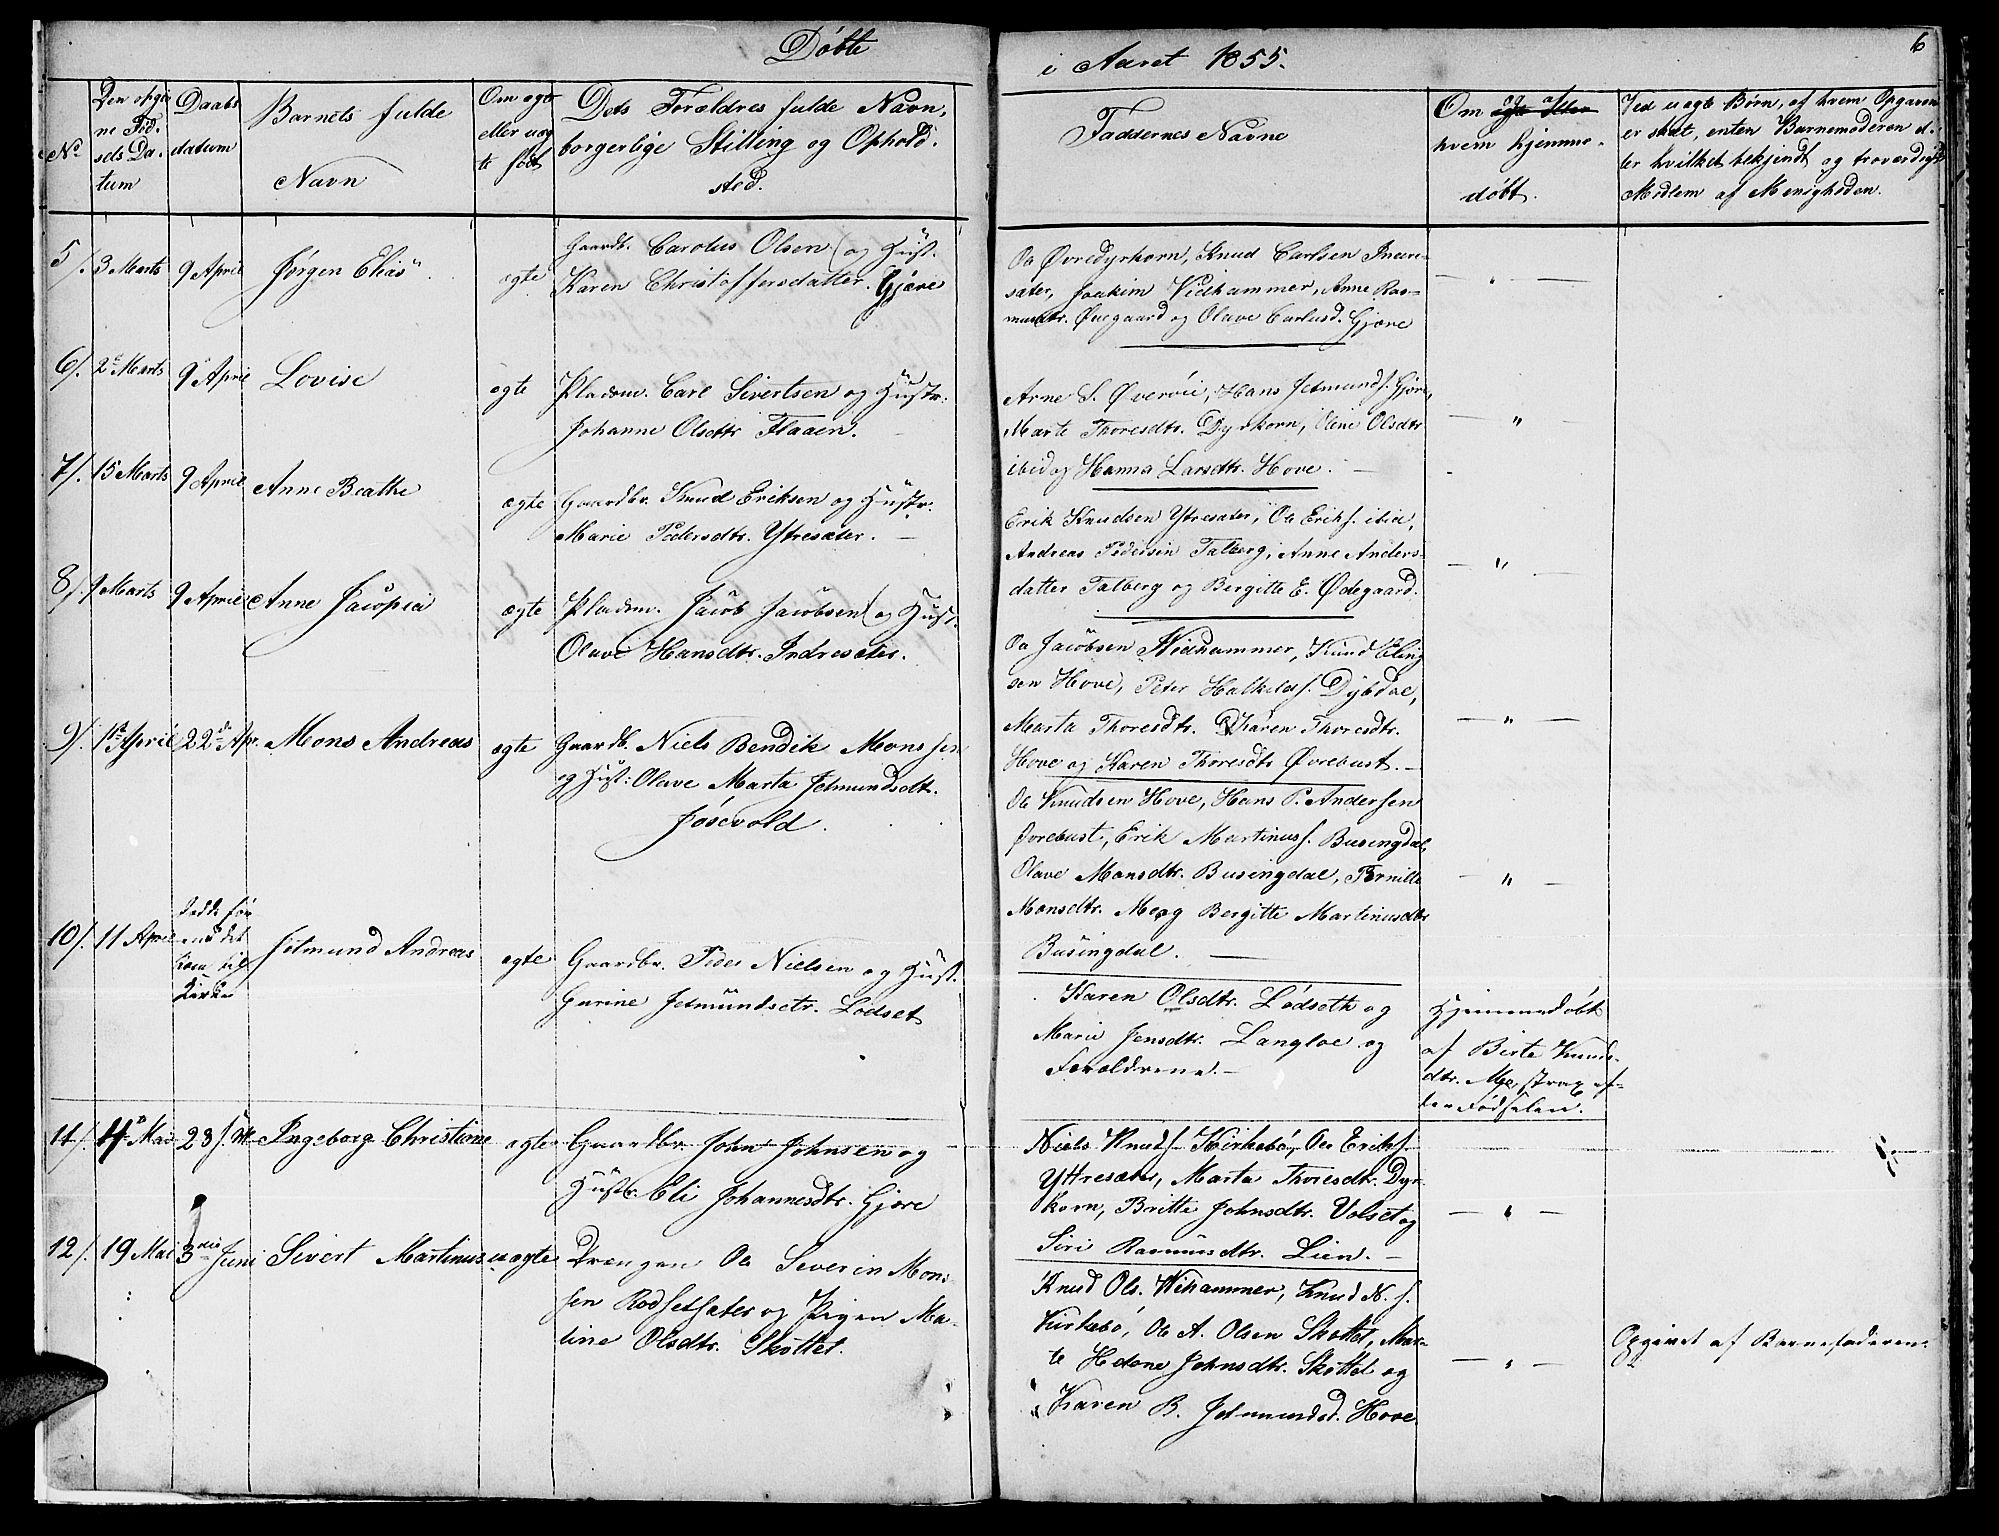 Døbte
i Aaret 1855.
6
No
Den opgivne Fødselsdatum
Daabsdatum
Barnets fulde Navn
Om ægte eller uægte født
Dets Forældres fulde Navn, borgerlige Stilling og Opholdsted.
Faddernes Navne
Om og af hvem hjemmedøbt.
Ved uægte Børn, af hvem Opgaven er skeet, enten Barnemoderen eller hvilket bekjendt og troværdigt Medlem af Menigheden.
5/. 3 Marts 9 April Jørgen Elias ægte
Gaardb. Carolus Olsen og Hust.
Karen Christoffersdatter Gjære
Ole Øvredyrkorn, Knud Carlsen Indre-
sæter, Joakim Vidhammer, Anne Ras-
musdtr. Øvegaard og Olave Carlusd. Gjære
6/. 2 Marts 9 April Lovise ægte
Pladsm. Carl Sivertsen og Hustr:
Johanne Olsdtr Flaaen.
Arne S. Øverøie, Hans Jetmunds. Gjøre,
Marte Thoresdtr. Dyrkorn, Oline Olsdtr
ibid og Hanna Larsdtr. Hove.
7/. 15 Marts 9 April Anne Beathe ægte
Gaardbr. Knud Eriksen og Hustr.
Marie Pedersdtr. Ytresæter.
Erik Knudsen Ytresæter, Ole Eriks. ibid,
Andreas Pedersen Talberg, Anne Anders-
datter Talberg og Bergitte E. Ødegaard.
8/. Marts 9 April Anne Jacopia ægte
Pladsm. Jacob Jacobsen og Hust.
Olave Hansdtr. Indresæter.
Ole Jacobsen Vidhammer, Knud Eling
sen Hove, Peter Halkilds. Dybdal,
Marta Thoresdtr. Karen Thoresdtr.
Hove og Karen Thoresdtr Øvrebust.
9/. 1ste April 22de Apr. Mons Andreas ægte
Gaardb. Niels Bendik Monssen
og Hust: Olave Marta Jetmundsdt.
Jøsevold.
Ole Knudsen Hove, Hans P. Andersen
Øvrebust, Erik Martinuss. Busingdal,
Olave Monsdtr. Busingdal, Pernille
Monsdtr. Me og Bergitte Martinusdtr
Busingdal.
10/. 11 April
Døde før
end det
kom til
Kirken
Jetmund Andreas ægte
Gaardbr. Peder Nielsen og Hust.
Gurine Jetmundsdtr. Lødset
Karen Olsdtr. Lødseth og
Marie Jensdtr. Langloe og
Forældrene.
Hjemmedøbt
af Birte Knuds-
dtr. Me, strax ef-
ter Fødselen.
11/. 4de Mai 28/. M. Ingeborg Christine ægte
Gaardbr. John Johnsen og
Hustr. Eli Johannesdtr. Gjøre
Niels Knuds. Kirkebø, Ole Eriks.
Yttresæter, Marta Thoresdtr. Dyr-
korn, Britte Johnsdtr. Volset og
Siri Rasmusdtr. Lien.
12/. 19 Mai 3die Juni Sivert Martinus uægte
Drengen Ole Severin Mons-
sen Rødsetsæter og Pigen Ma-
line Olsdtr. Skottet.
Knud Ols. Wihammer, Knud N. s.
Kirkebø, Ole A. Olsen Skottet, Mar-
te Helene Johnsdtr. Skottet og
Karen B. Jetmundsd. Hove.
Opgivet af Barnefaderen.